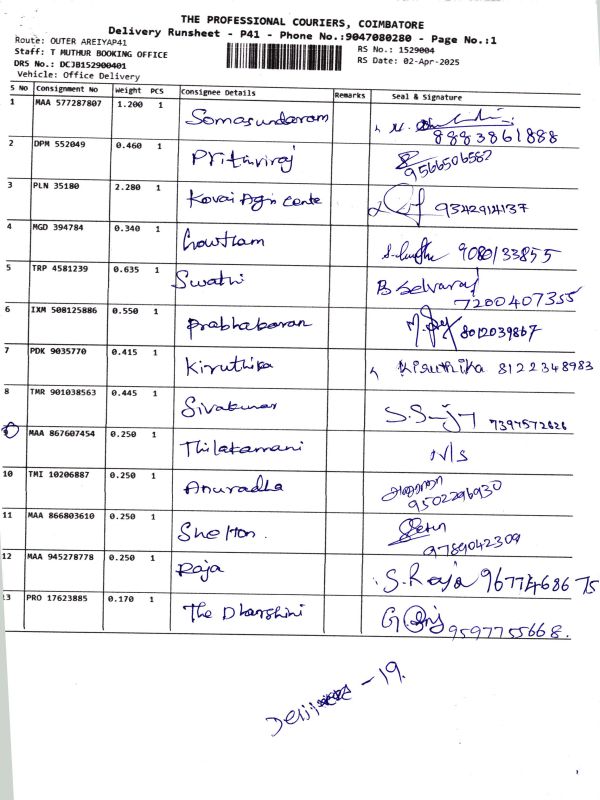 THE PROFESSIONAL COURIERS, COIMBATORE
Delivery Runsheet - P41 - Phone No.:9047080280 - Page No.:1
Route: OUTER AREIYAP41
Staff: T MUTHUR BOOKING OFFICE
RS No.: 1529004
DRS No.: DCJB152900401
RS Date: 02-Apr-2025
Vehicle: Office Delivery
S No Consignment No Weight PCS Consignee Details Remarks Seal & Signature
1 MAA 577287807 1.200 1 Somasundaram
8883861888
2 DPM 552049 0.460 1 Prithviraj
9566506582
3 PLN 35180 2.280 1 Kovai Agri Cente 9342914137
4 MGD 394784 0.340 1 Gowtham 9080133855
5 TRP 4581239 0.635 1 Swathi B Selvaraj
7200407355
6 IXM 508125886 0.550 1 Prabhakaran 8012039867
7 PDK 9035770 0.415 1 Kiruthika Kiruthika 8122348983
8 TMR 901038563 0.445 1 Sivakumar 7397572626
MAA 867607454 0.250 1 Thilakamani N/S
10 TMI 10206887 0.250 1 Anuradha
9502296930
11 MAA 866803610 0.250 1 Shelton.
9789042309
12 MAA 945278778 0.250 1 Raja S. Raja 9677468675
13 PRO 17623885 0.170 1 The Dharshini 9597755668.
- 19.